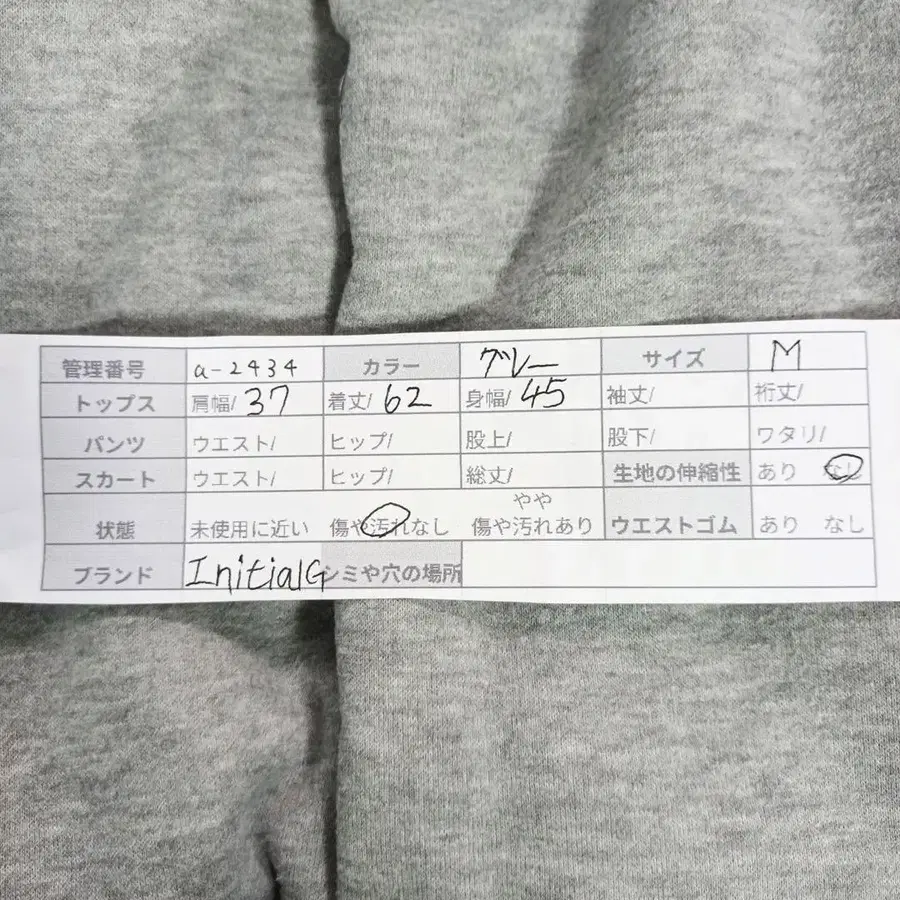 管理番号 a-2434 カラー グレー サイズ M
トップス 肩幅/ 37 着丈/ 62 身幅/ 45 袖丈/ 裄丈/
パンツ ウエスト/ ヒップ/ 股上/ 股下/ ワタリ/
スカート ウエスト/ ヒップ/ 総丈/ 生地の伸縮性 あり なし
状態 未使用に近い 傷や汚れなし やや傷や汚れあり ウエストゴム あり なし
ブランド InitialG シミや穴の場所